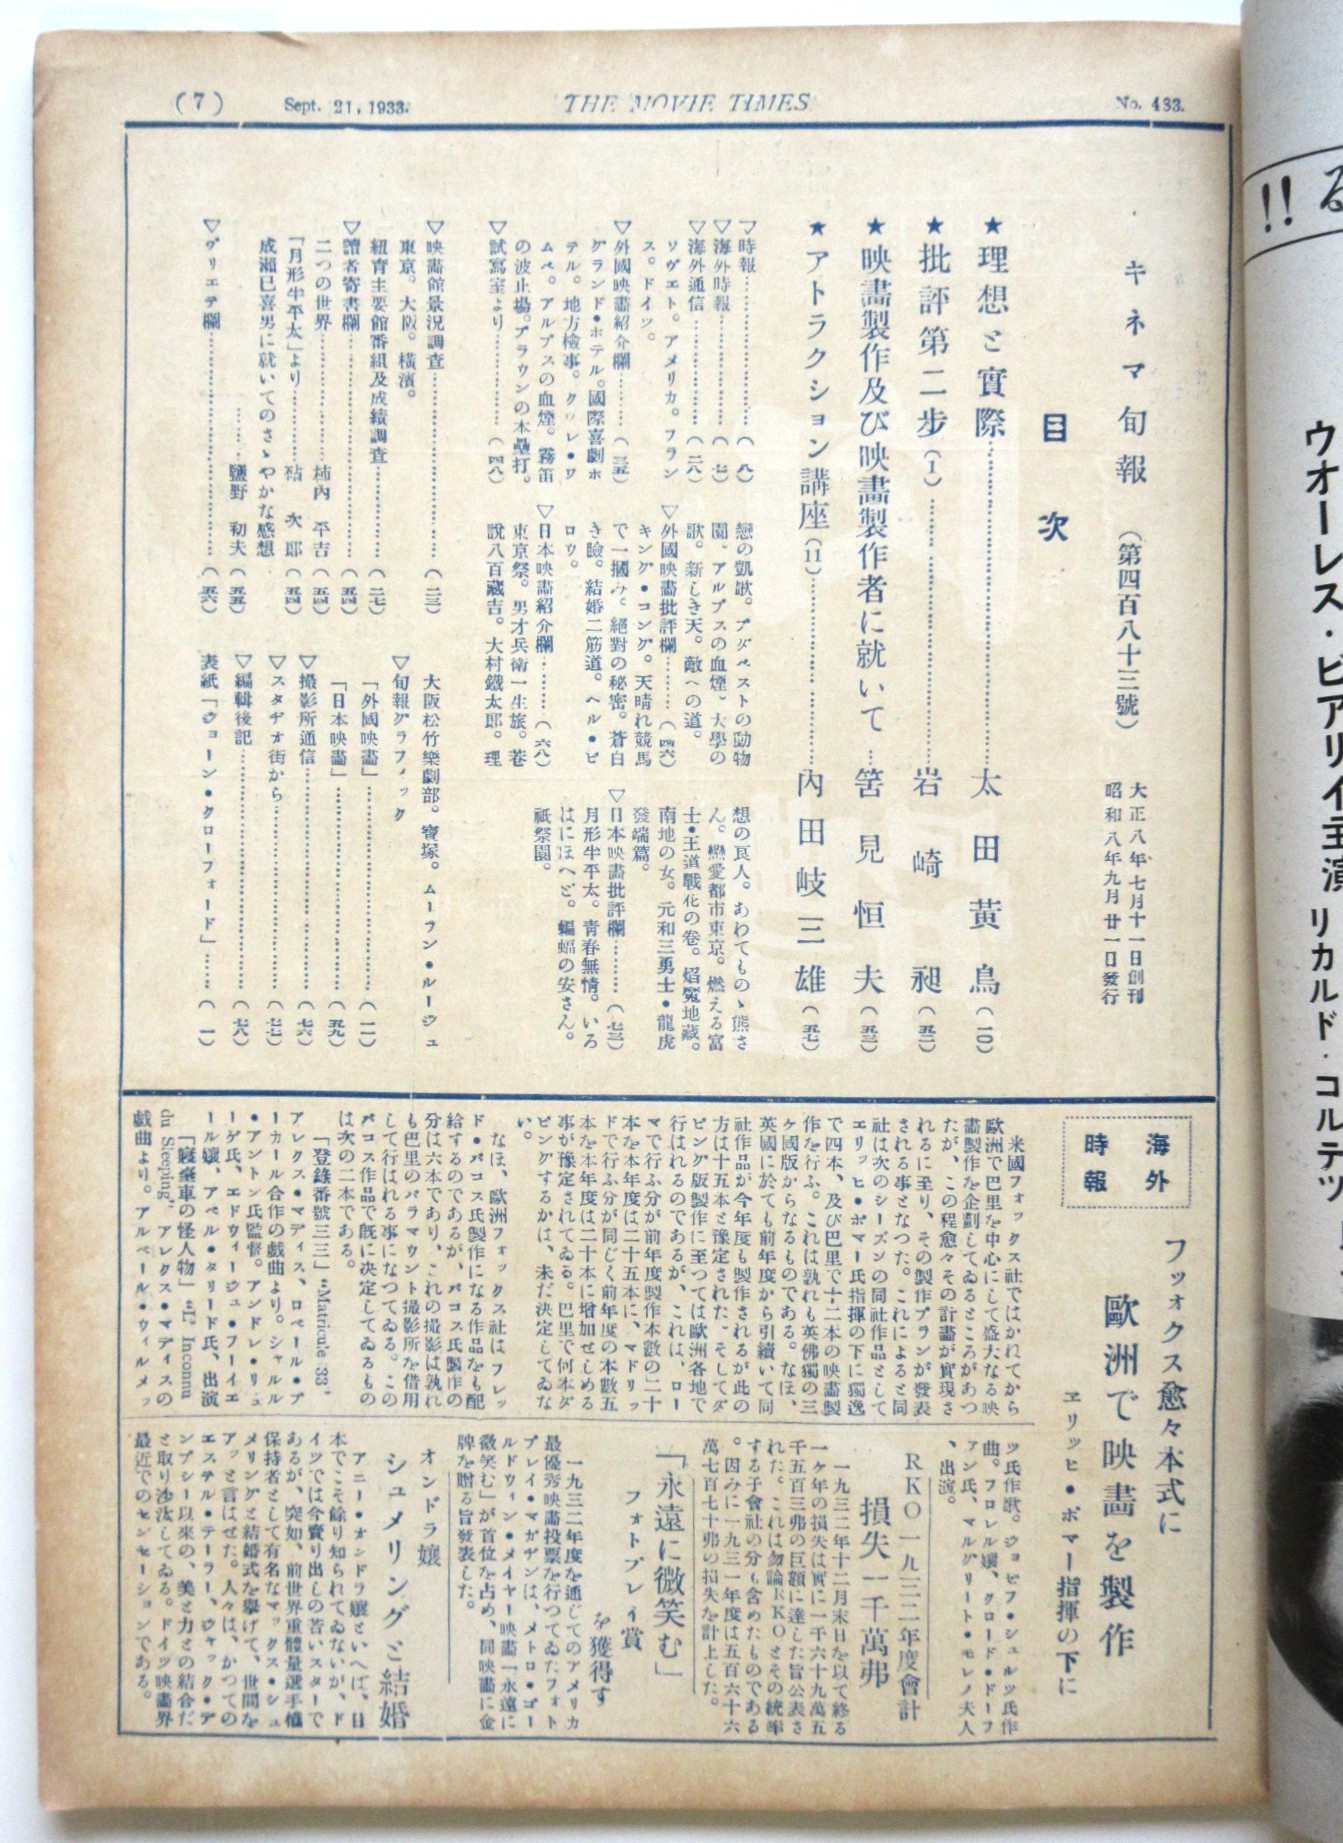 (7)
Sept. 21, 1933.
THE MOVIE TIMES
No. 483.
キネマ旬報 (第四百八十三號)
大正八年七月十一日創刊
昭和八年九月廿一日發行
目次
★理想と實際…太田黃鳥(一〇)
★批評第二步(1)…岩崎昶(五二)
★映畫製作及び映畫製作者に就いて…筈見恒夫(五三)
★アトラクション講座(11)…內田岐三雄(五七)
▽時報…(八)
▽海外時報…(七)
▽海外通信…(二八)
ソヴエト。アメリカ。フラン
ス。ドイツ。
▽外國映畫紹介欄…(三五)
グランド・ホテル。國際喜劇ホ
テル。地方檢事。クウレ・ワ
ムペ。アルプスの血煙。霧笛
の波止場。ブラウンの本壘打。
▽試寫室より…(四八)
戀の凱歌。ブダペストの動物
園。アルプスの血煙。大學の
歌。新しき天。敵への道。
▽外國映畫批評欄…(四六)
キング・コング。天晴れ競馬
で一摑み。絕對の秘密。蒼白
き瞼。結婚二筋道。ヘル・ビ
ロウ。
▽日本映畫紹介欄…(六八)
東京祭。男才兵衛一生旅。巷
說八百藏吉。大村鐵太郎。理
想の良人。あわてものゝ熊さ
ん。戀愛都市東京。燃える富
士・王道戰花の卷。焰魔地藏。
南地の女。元和三勇士・龍虎
發端篇。
▽日本映畫批評欄…(七三)
月形半平太。靑春無情。いろ
はにほへど。蝙蝠の安さん。
祇祭園。
▽映畫館景況調查…(二三)
東京。大阪。橫濱。
紐育主要館番組及成績調查…(二七)
▽讀者寄書欄…(五四)
二つの世界…柿內平吉(五四)
「月形半平太」より…砧次郎(五四)
成瀨已喜男に就いてのさゝやかな感想
…鹽野初夫(五五)
▽ヴリエテ欄…(五六)
大阪松竹樂劇部。寶塚。ムーラン・ルージュ
▽旬報グラフィック
「外國映畫」…(一一)
「日本映畫」…(五九)
▽撮影所通信…(七六)
▽スタヂオ街から…(七七)
▽編輯後記…(七八)
表紙「ジョーン・クローフォード」…(一)
海外
時報
フォックス愈々本式に
歐洲で映畫を製作
エリッヒ・ポマー指揮の下に
米國フォックス社ではかれてから
歐洲で巴里を中心にして盛大なる映
畫製作を企劃してゐるところがあつ
たが、この程愈々その計畫が實現さ
れるに至り、その製作プランが發表
される事となつた。これによると同
社は次のシーズンの同社作品として
エリッヒ・ポマー氏指揮の下に獨逸
で四本、及び巴里で十二本の映畫製
作を行ふ。これは孰れも英佛獨の三
ケ國版からなるものである。なほ、
英國に於ても前年度から引續いて同
社作品が今年度も製作されるが此の
方は十五本と豫定された。そしてダ
ビング版製作に至つては歐洲各地で
行はれるのであるが、これは、ロー
マで行ふ分が前年度製作本數の二十
本を本年度は二十五本に、マドリッ
ドで行ふ分が同じく前年度の本數五
本を本年度は二十本に增加せしめる
事が豫定されてゐる。巴里で何本ダ
ビングするかは、未だ決定してゐな
い。
なほ、歐洲フォックス社はフレッ
ド・バコス氏製作になる作品をも配
給するのであるが、バコス氏製作の
分は六本であり、これの撮影は孰れ
も巴里のパラマウント撮影所を借用
して行はれる事になつてゐる。この
バコス作品で旣に決定してゐるもの
は次の二本である。
「登錄番號三三」“Matricule 33”
アレクス・マディス、ロベール・ブ
ーカール合作の戲曲より。シャルル
・アントン氏監督。アンドレ・リュ
ーゲ氏、エドウィージュ・フーイエ
ール孃、アベル・タリード氏、出演
「寢臺車の怪人物」“L' Inconnu
du Sleeping” アレクス・マディスの
戲曲より。アルベール・ウィルメッ
ツ氏作歌。ジョセフ・シュルツ氏作
曲。フロレル孃、クロード・ドーフ
ァン氏、マルグリート・モレノ夫人
、出演。
RKO一九三二年度會計
損失一千萬弗
一九三二年十二月末日を以て終る
一ケ年の損失は實に一千六十九萬五
千五百三弗の巨額に達した旨公表さ
れた。これは勿論RKOとその統率
する子會社の分も含めたものである
。因みに一九三一年度は五百六十六
萬七百七十弗の損失を計上した。
「永遠に微笑む」
フォトプレイ賞
を獲得す
一九三二年度を通じてのアメリカ
最優秀映畫投票を行つてゐたフォト
プレイ・マガヂンは、メトロ・ゴー
ルドウィン・メイヤー映畫「永遠に
微笑む」が首位を占め、同映畫に金
牌を贈る旨發表した。
オンドラ孃
シュメリングと結婚
アニー・オンドラ孃といへば、日
本でこそ餘り知られてゐないが、ド
イツでは今賣り出しの若いスターで
あるが、突如、前世界重體量選手權
保持者として有名なマックス・シュ
メリングと結婚式を擧げて、世間を
アッと言はせた。人々は、かつての
エステル・テーラー、ジャック・デ
ンプシー以來の、美と力との結合だ
と取り沙汰してゐる。ドイツ映畫界
最近でのセンセーションである。
る!!
ウオーレス・ビアリイ主演 リカルド・コルテツ